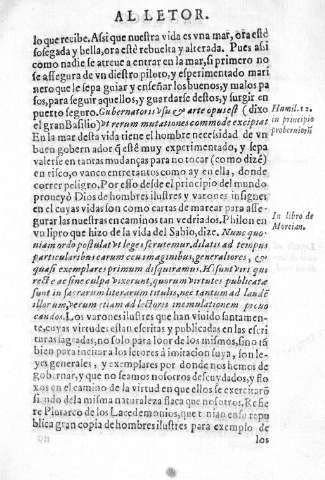 AL LETOR.
lo que recibe. Asi que nuestra vida es vna mar, ora esté
sosegada y bella, ora esté rebuelta y alterada. Pues asi
como nadie se atreue a entrar en la mar, si primero no
se assegura de vn diestro piloto, y esperimentado mari
nero que le sepa guiar y enseñar los buenos, y malos pa
sos, para seguir aquellos, y guardarse destos, y surgir en
puerto seguro. Gubernatoris vsu & arte opus est (dixo
el gran Basilio) vt rerum mutationes commode excipiat
En la mar desta vida tiene el hombre necesidad de vn
buen gobernador q̃ esté muy experimentado, y sepa
valerse en tantas mudanças para no tocar (como dizẽ)
en risco, o vanco entre tantos como ay en ella, donde
correr peligro. Por esso desde el principio del mundo
proueyò Dios de hombres ilustres y varones insignes
en cuyas vidas son como cartas de marear para asse-
gurar las nuestras en caminos tan vedriados. Philon en
vn libro que hizo de la vida del Sabio, dize. Nunc quo-
niam ordo postulat vt leges scrutemur, dilatis ad tempus
particularibus earum ceu imaginibus, generaliores, &
quasi exemplares primum disquiramus. Hi sunt viri qui
recte ac sine culpa vixerunt, quorum virtutes publicatæ
sunt in sacrarum literarum titulis, nec tantum ad laudẽ
illorum, verum etiam ad lectoris in emulationem prouo
candos. Los varones ilustres que han viuido santamen-
te, cuyas virtudes estan escritas y publicadas en las escri
turas sagradas, no solo para loor de los mismos, sino tã
bien para incitar a los letores à imitacion suya, son le-
yes generales, y exemplares por donde nos hemos de
gobernar, y que no seamos nosotros descuydados, y flo
xos en el camino de la virtud en que ellos se exercitarõ
siendo dela misma naturaleza flaca que nosotros. Refie
re Plutarco de los Lacedemonios, que tenian en su repu
blica gran copia de hombres ilustres para exemplo de
los
Hamil. 12.
in principio
proberniorũ
In libro de
Morcian.